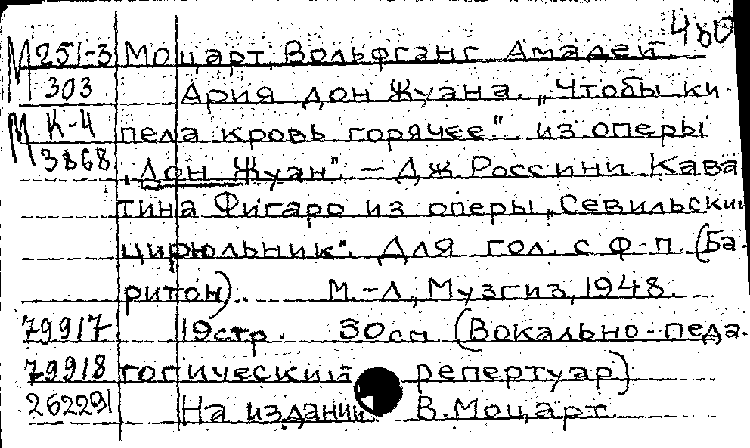 480
М251-3 Моцарт, Вольфганг Амадей.
303 Ария дон Жуана. „Чтобы ки-
М К-4 пела кровь горячее". из оперы
13868 „Дон Жуан". – Дж. Россини. Кава
тина Фигаро из оперы „Севильский
цирюльник". Для гол. с ф-п. (Ба-
ритон). М.-Л., Музгиз, 1948.
79917 19стр. 30см (Вокально-педа-
79918 гогический репертуар)
262291 На издании В. Моцарт